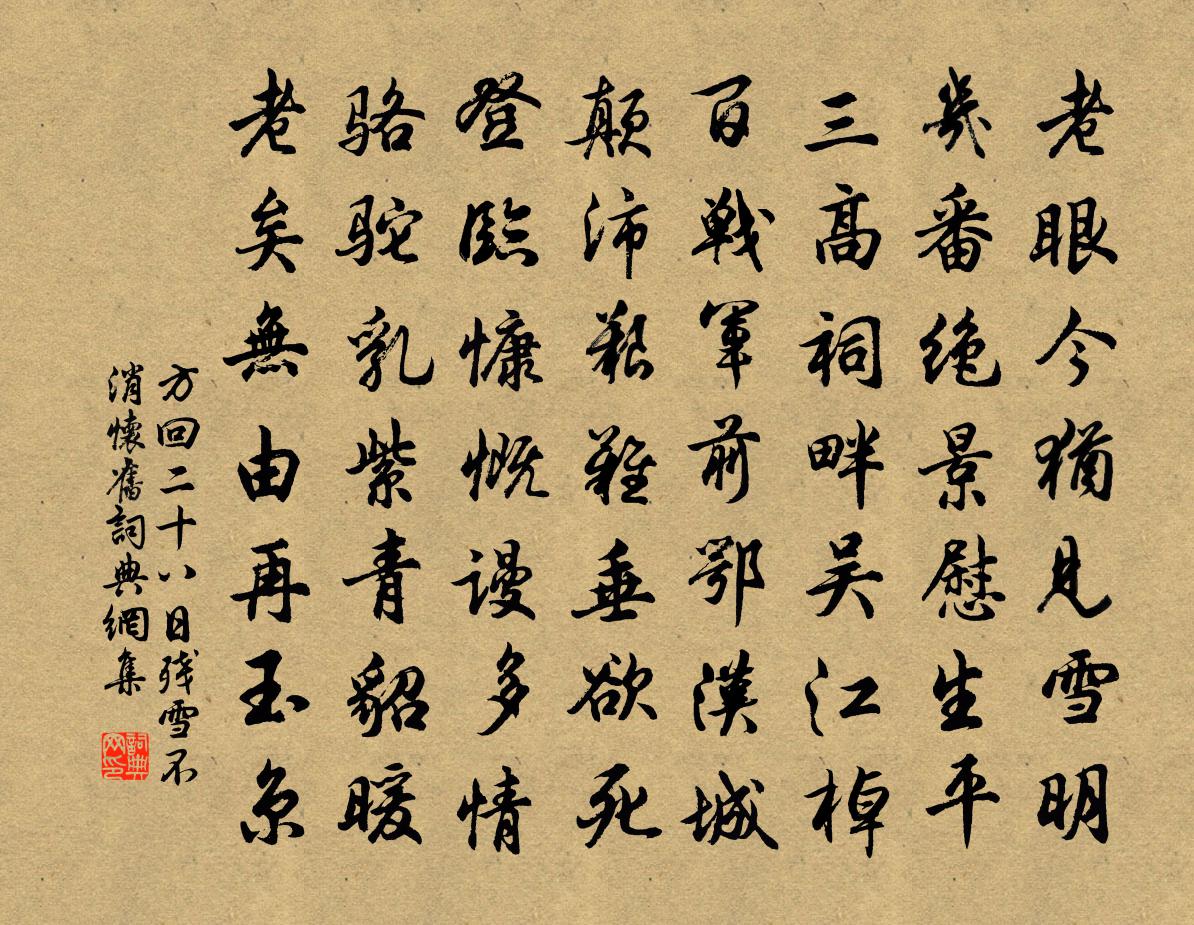 老眼今猶見雪明
幾番绝景慰生平
三高祠畔吴江棹
百戦軍前鄂漢城
颠沛艱難垂欲死
登臨慷慨谩多情
骆驼乳紫青貂暖
老矣無由再玉京
方回二十八日残雪不
消懷舊詞典網集
詞典
网印